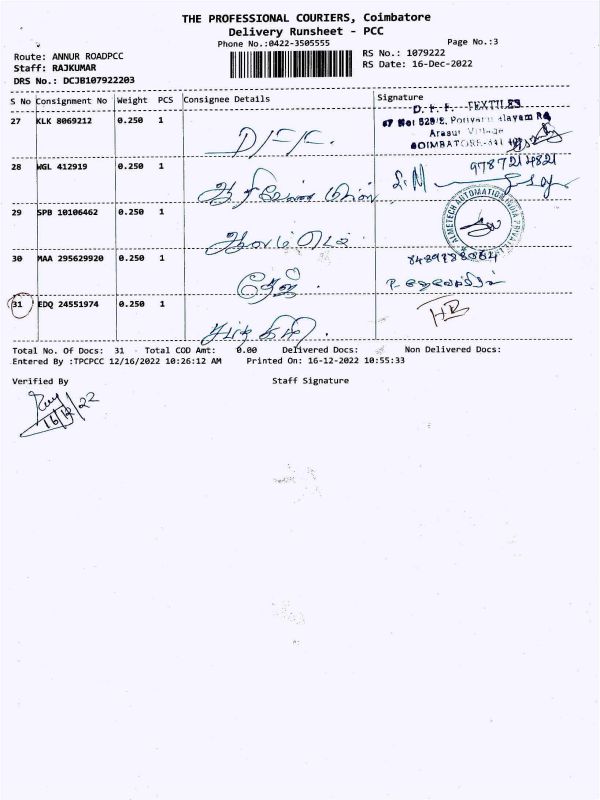 THE PROFESSIONAL COURIERS, Coimbatore
Delivery Runsheet - PCC
Phone No.:0422-3505555
Page No.:3
Route: ANNUR ROADPCC
RS No.: 1079222
Staff: RAJKUMAR
RS Date: 16-Dec-2022
DRS No.: DCJB107922203
S No Consignment No Weight PCS Consignee Details Signature
27 KLK 8069212 0.250 1
TEXTILES
Arasur Village
28 WGL 412919 0.250 1
9787214821
29 SPB 10106462 0.250 1
ALMETECH AUTOMATION INDIA PRIVATE
30 MAA 295629920 0.250 1
31 EDQ 24551974 0.250 1
HB
Total No. Of Docs: 31 Total COD Amt: 0.00 Delivered Docs: Non Delivered Docs:
Entered By :TPCPCC 12/16/2022 10:26:12 AM Printed On: 16-12-2022 10:55:33
Verified By Staff Signature
16/12/22